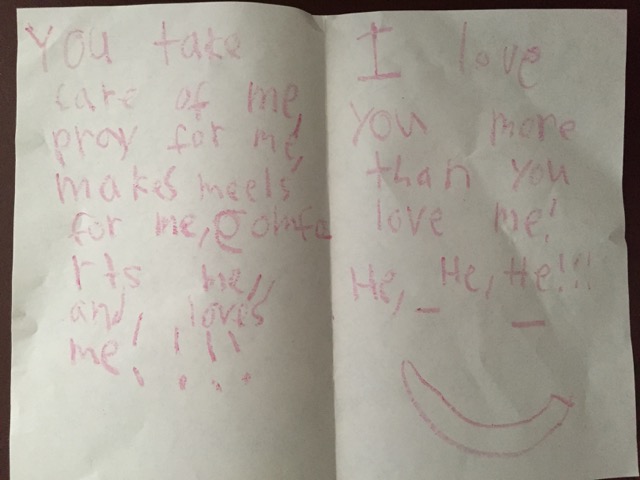 You take
care of me,
pray for me,
makes meels
for me, Comfo
rts me,
and, loves
me!!!!
I love
you more
than you
love me!
He, He, He!!!